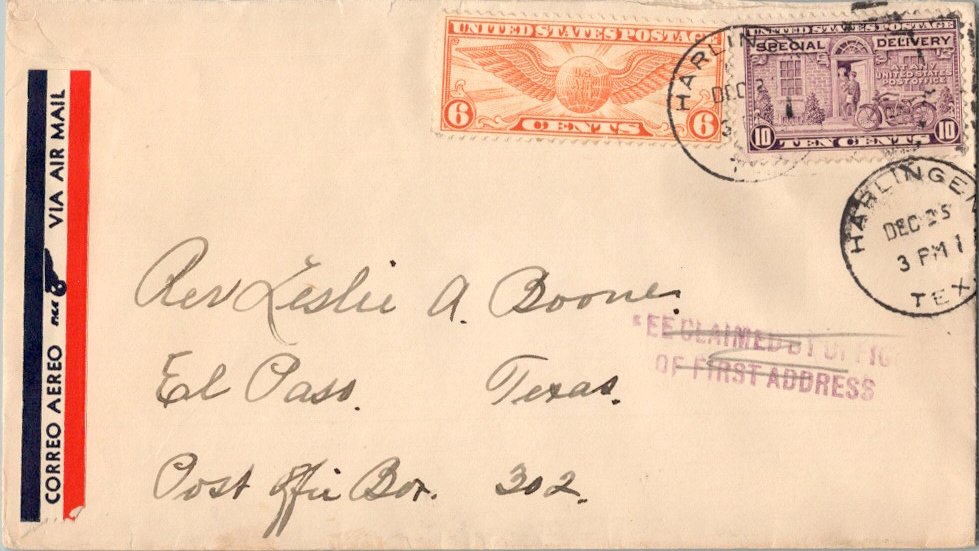 UNITED STATES POSTAGE
U.S.
6 CENTS 6
UNITED STATES POSTAGE
SPECIAL DELIVERY
AT ANY
UNITED STATES
POST OFFICE
10 TEN CENTS 10
HARLIN
DEC
3
HARLINGEN
DEC 25
3 PM
TEX
VIA AIR MAIL
CORREO AEREO
Rev Leslie A. Boone.
El Paso. Texas.
Post Offic Box. 302.
FEE CLAIMED BY OFFIC
OF FIRST ADDRESS